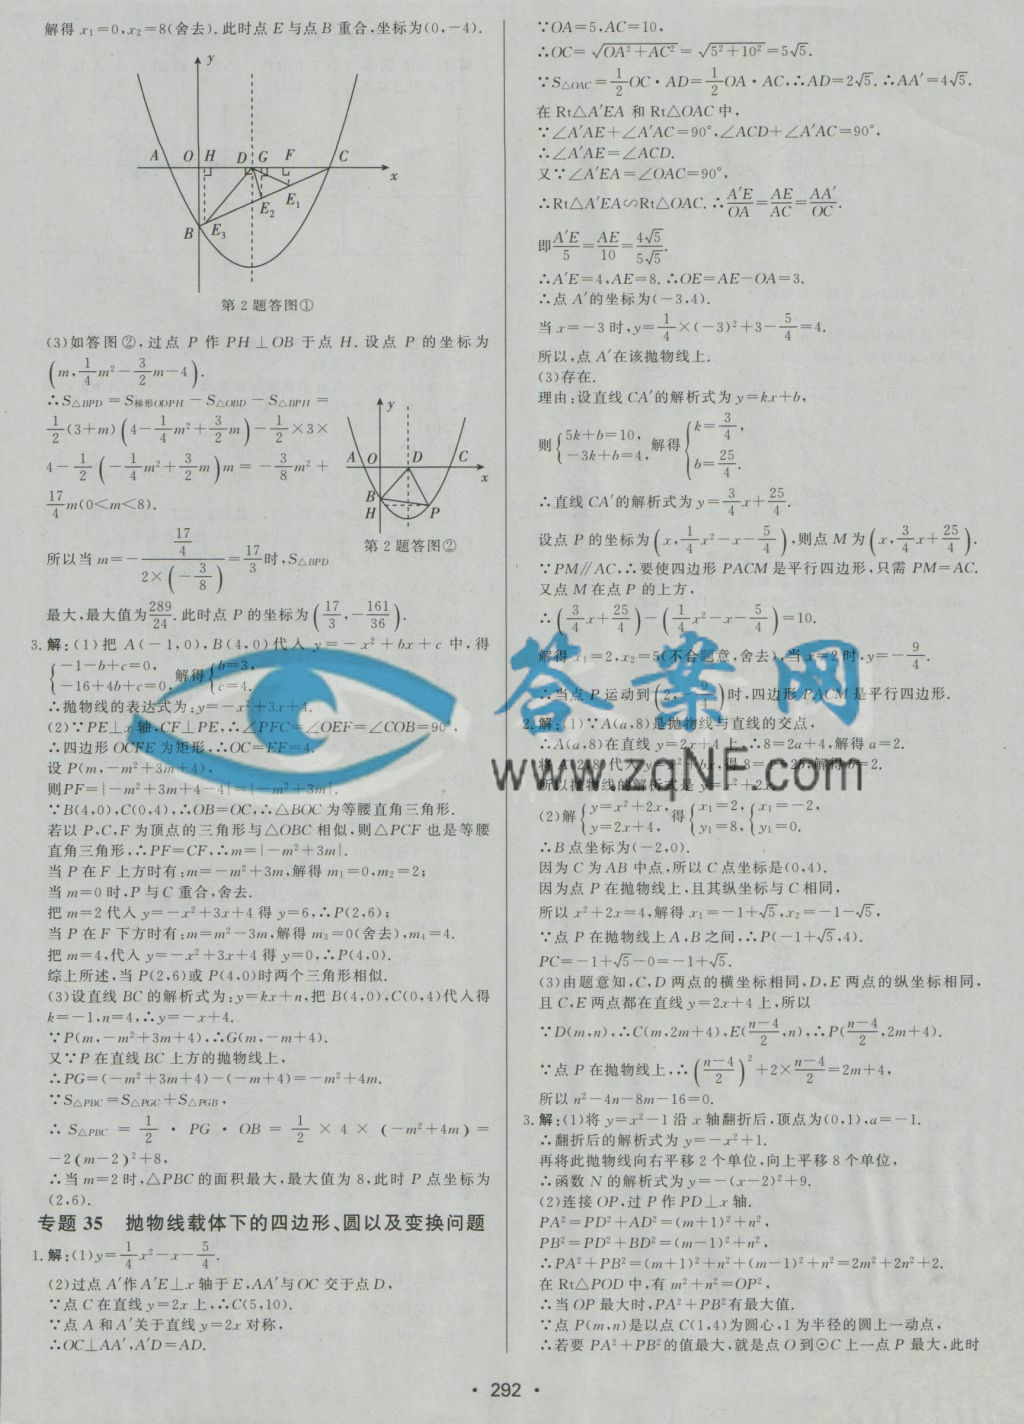 解得 x₁=0,x₂=8(舍去).此时点 E 与点 B 重合,坐标为(0,-4).
y
A O H D G F C x
E₁
E₂
B E₃
第 2 题答图①
(3)如答图②,过点 P 作 PH⊥OB 于点 H.设点 P 的坐标为
(m,1/4m²-3/2m-4).
∴S△BPD=S梯形ODPH-S△OBD-S△BPH=
1/2(3+m)(4-1/4m²+3/2m)-1/2×3×
4-1/2(-1/4m²+3/2m)m=-3/8m²+
17/4m(0<m<8).
y
A O D C x
B
H P
第 2 题答图②
所以当 m=-(17/4)/(2×(-3/8))=17/3时,S△BPD
最大,最大值为289/24.此时点 P 的坐标为(17/3,-161/36).
3.解:(1)把 A(-1,0),B(4,0)代入 y=-x²+bx+c 中,得
{-1-b+c=0, -16+4b+c=0, 解得{b=3, c=4.
∴抛物线的表达式为:y=-x²+3x+4.
(2)∵PE⊥x 轴,CF⊥PE,∴∠PFC=∠OEF=∠COB=90°,
∴四边形 OCFE 为矩形,∴OC=EF=4.
设 P(m,-m²+3m+4),
则PF=|-m²+3m+4-4|=|-m²+3m|.
∵B(4,0),C(0,4),∴OB=OC,∴△BOC 为等腰直角三角形.
若以 P,C,F 为顶点的三角形与△OBC 相似,则△PCF 也是等腰
直角三角形,∴PF=CF,∴m=|-m²+3m|.
当 P 在 F 上方时有:m=-m²+3m,解得 m₁=0,m₂=2;
当 m=0 时,P 与 C 重合,舍去.
把 m=2 代入 y=-x²+3x+4 得 y=6,∴P(2,6);
当 P 在 F 下方时有:m=m²-3m,解得 m₃=0(舍去),m₄=4.
把 m=4,代入 y=-x²+3x+4 得 y=0,∴P(4,0).
综上所述,当 P(2,6)或 P(4,0)时两个三角形相似.
(3)设直线 BC 的解析式为:y=kx+n,把 B(4,0),C(0,4)代入得
k=-1,n=4,∴y=-x+4.
∵P(m,-m²+3m+4),∴G(m,-m+4).
又∵P 在直线 BC 上方的抛物线上,
∴PG=(-m²+3m+4)-(-m+4)=-m²+4m.
∵S△PBC=S△PGC+S△PGB,
∴S△PBC=1/2·PG·OB=1/2×4×(-m²+4m)=
-2(m-2)²+8,
∴当 m=2 时,△PBC 的面积最大,最大值为 8,此时 P 点坐标为
(2,6).
专题 35 抛物线载体下的四边形、圆以及变换问题
1.解:(1)y=1/4x²-x-5/4.
(2)过点 A′作 A′E⊥x 轴于 E,AA′与 OC 交于点 D,
∵点 C 在直线 y=2x 上,∴C(5,10).
∵点 A 和 A′关于直线 y=2x 对称,
∴OC⊥AA′,A′D=AD.
∵OA=5,AC=10,
∴OC=√(OA²+AC²)=√(5²+10²)=5√5.
∵S△OAC=1/2OC·AD=1/2OA·AC,∴AD=2√5.∴AA′=4√5.
在 Rt△A′EA 和 Rt△OAC 中,
∵∠A′AE+∠A′AC=90°,∠ACD+∠A′AC=90°,
∴∠A′AE=∠ACD.
又∵∠A′EA=∠OAC=90°,
∴Rt△A′EA∽Rt△OAC.∴A′E/OA=AE/AC=AA′/OC.
即A′E/5=AE/10=4√5/5√5.
∴A′E=4,AE=8.∴OE=AE-OA=3.
∴点 A′的坐标为(-3,4).
当 x=-3 时,y=1/4×(-3)²+3-5/4=4.
所以,点 A′在该抛物线上.
(3)存在.
理由:设直线 CA′的解析式为 y=kx+b,
则{5k+b=10, -3k+b=4, 解得{k=3/4, b=25/4.
∴直线 CA′的解析式为 y=3/4x+25/4.
设点 P 的坐标为(x,1/4x²-x-5/4),则点 M 为(x,3/4x+25/4).
∵PM∥AC,∴要使四边形 PACM 是平行四边形,只需 PM=AC.
又点 M 在点 P 的上方,
∴(3/4x+25/4)-(1/4x²-x-5/4)=10.
解得 x₁=2,x₂=5(不合题意,舍去),当 x=2 时,y=-9/4.
∴当点 P 运动到(2,-9/4)时,四边形 PACM 是平行四边形.
2.解:(1)∵A(a,8)是抛物线与直线的交点,
∴A(a,8)在直线 y=2x+4 上,∴8=2a+4,解得 a=2.
将 A(2,8)代入 y=x²+bx,得 8=2²+2b,解得 b=2.
所以抛物线的解析式是 y=x²+2x.
(2)解{y=x²+2x, y=2x+4, 得{x₁=2, y₁=8, {x₁=-2, y₁=0.
∴B 点坐标为(-2,0).
因为 C 为 AB 中点,所以 C 点坐标是(0,4).
因为点 P 在抛物线上,且其纵坐标与 C 相同,
所以 x²+2x=4,解得 x₁=-1+√5,x₂=-1-√5,
∵点 P 在抛物线上 A,B 之间,∴P(-1+√5,4).
PC=-1+√5-0=-1+√5.
(3)由题意知,C,D 两点的横坐标相同,D,E 两点的纵坐标相同,
且 C,E 两点都在直线 y=2x+4 上,所以
∵D(m,n),∴C(m,2m+4),E((n-4)/2,n),∴P((n-4)/2,2m+4).
∵点 P 在抛物线上,∴((n-4)/2)²+2×(n-4)/2=2m+4,
所以 n²-4n-8m-16=0.
3.解:(1)将 y=x²-1 沿 x 轴翻折后,顶点为(0,1),a=-1.
∴翻折后的解析式为 y=-x²+1.
再将此抛物线向右平移 2 个单位,向上平移 8 个单位,
∴函数 N 的解析式为 y=-(x-2)²+9.
(2)连接 OP,过 P 作 PD⊥x 轴.
PA²=PD²+AD²=(m+1)²+n²,
PB²=PD²+BD²=(m-1)²+n²,
∴PA²+PB²=(m+1)²+n²+(m-1)²+n²=2m²+2n²+2.
在 Rt△POD 中,有 m²+n²=OP²,
∴当 OP 最大时,PA²+PB²有最大值.
∵点 P(m,n)是以点 C(1,4)为圆心,1 为半径的圆上一动点,
∴若要 PA²+PB²的值最大,就是点 O 到⊙C 上一点 P 最大,此时
答案网
www.zqNF.com
· 292 ·